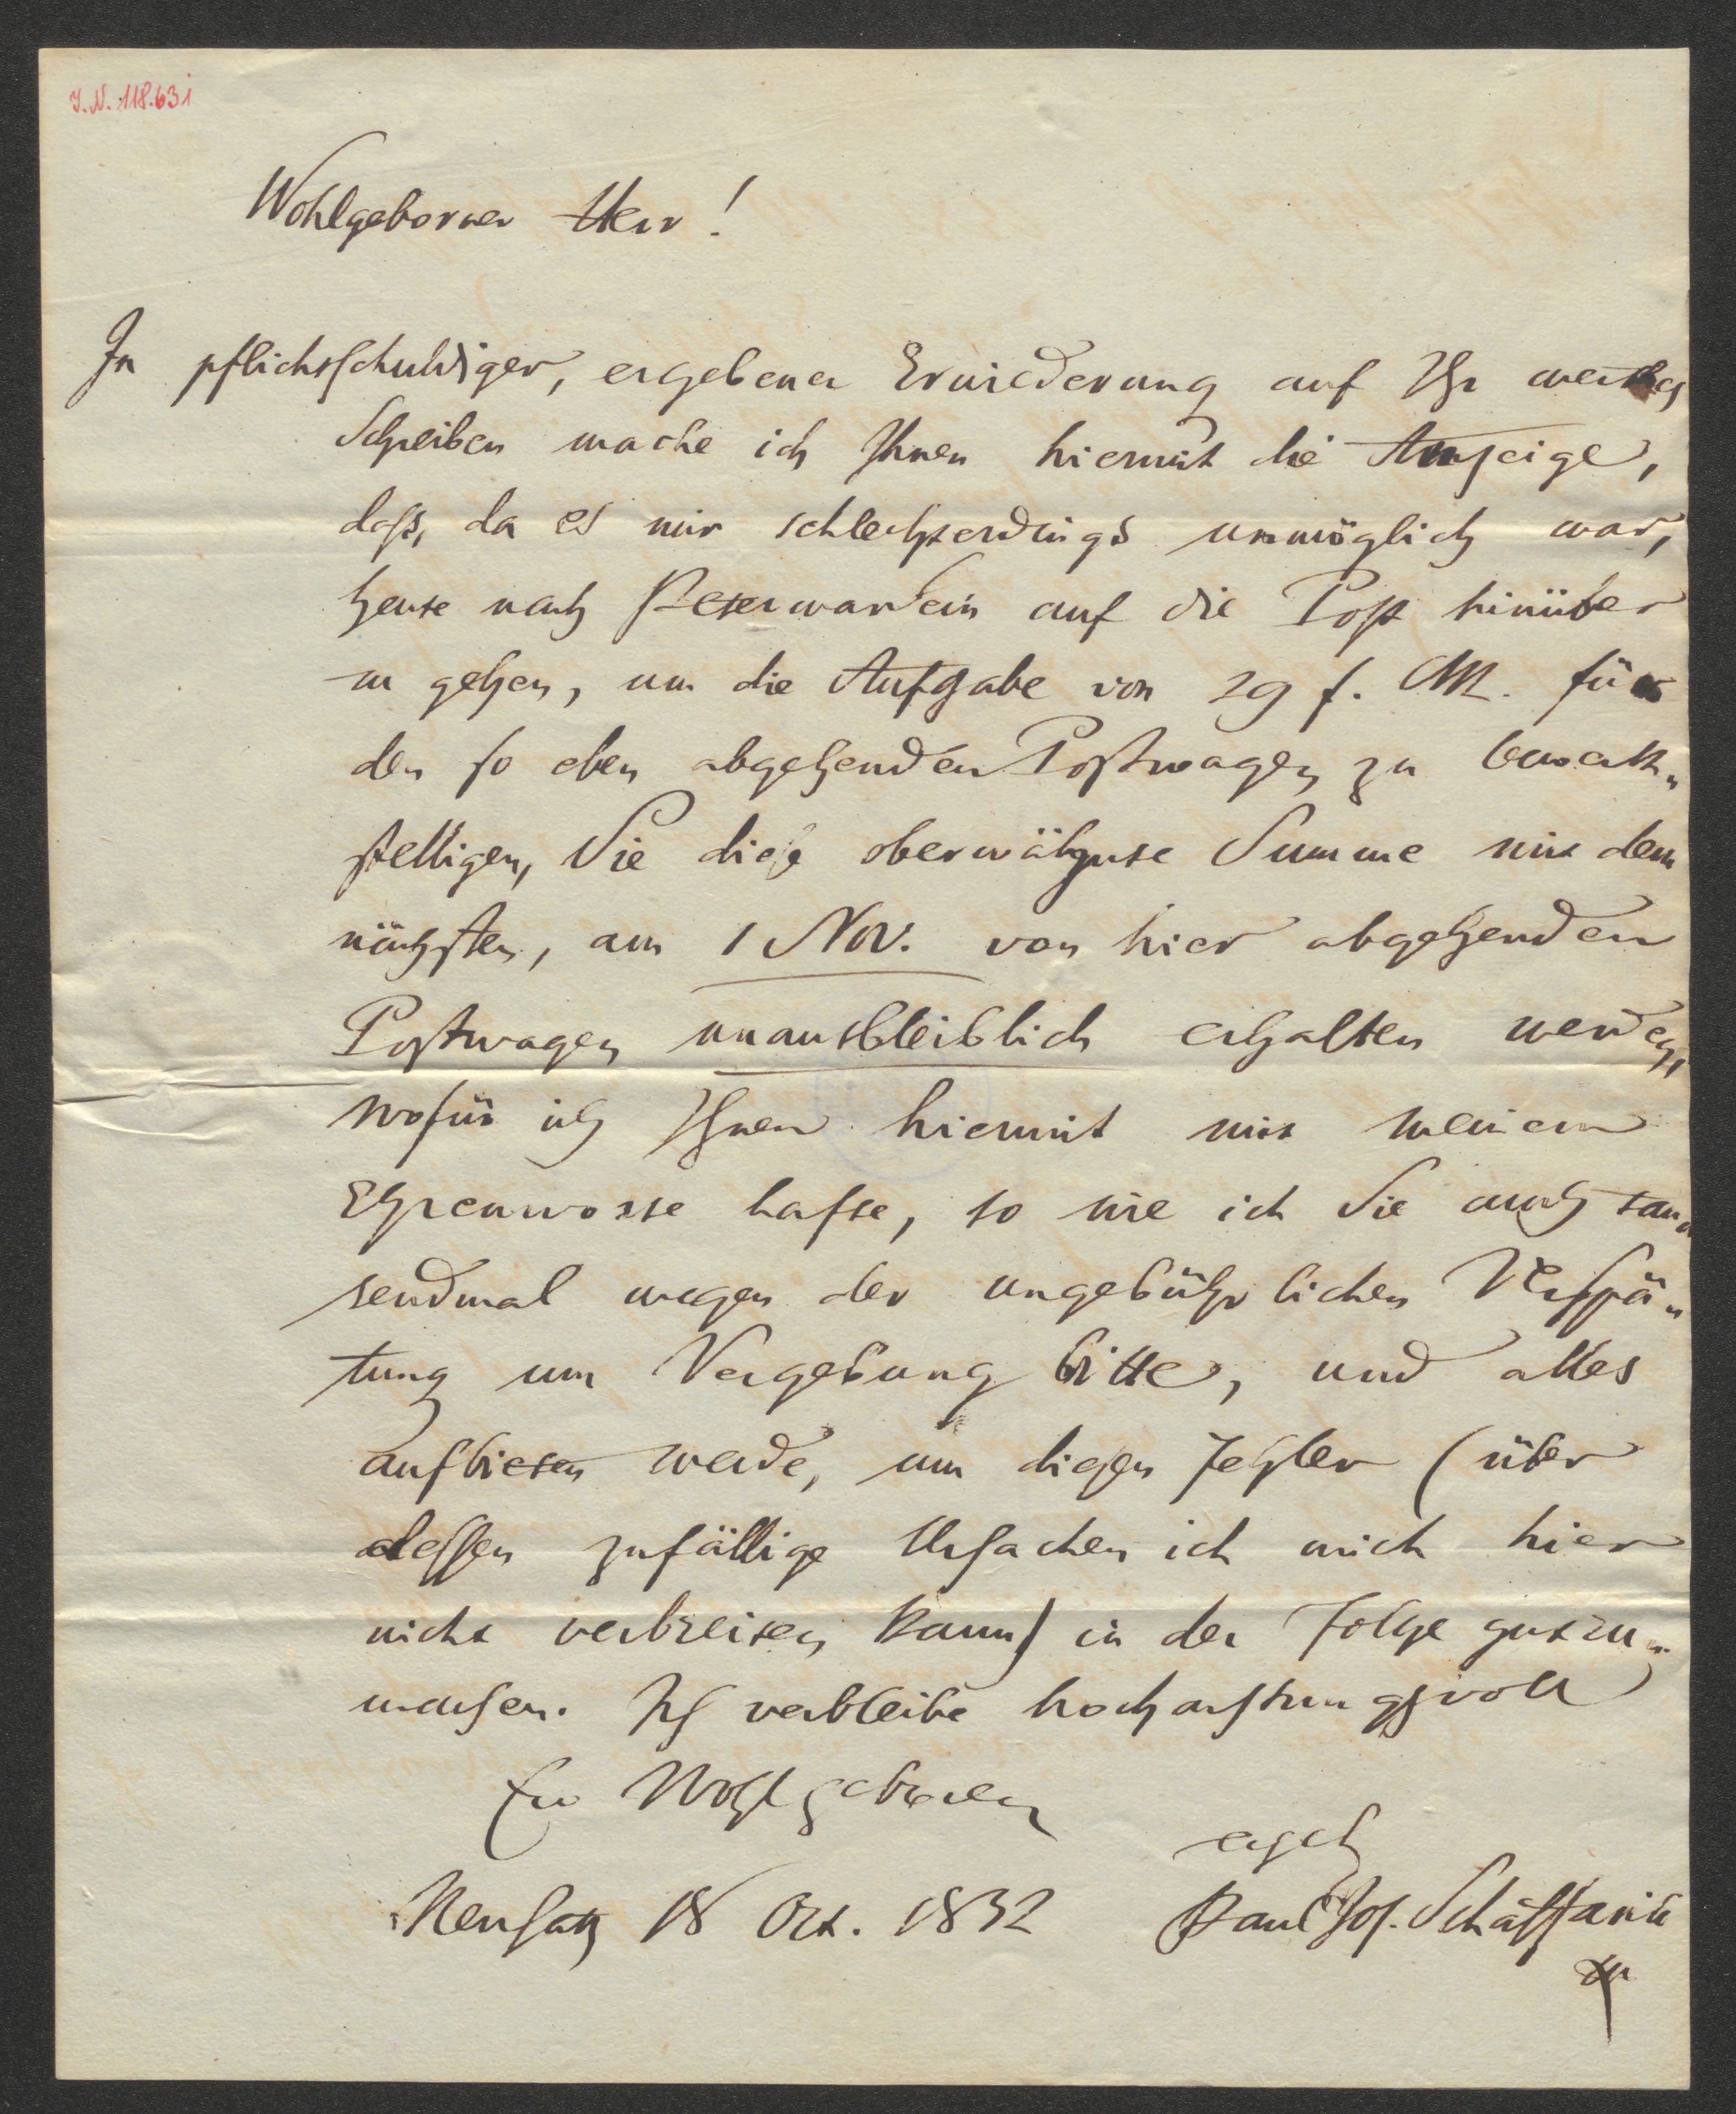 I.N. 118.631
Wohlgeborner Herr!
In pflichtschuldiger, ergebener Erwiederung auf Ihr werthes
Schreiben mache ich Ihnen hiermit die Anzeige,
daß, da es mir schlechterdings unmöglich war,
heute nach Peterwardein auf die Post hinüber
zu gehen, um die Aufgabe von 29 f. CM. für
den so eben abgehenden Postwagen zu bewerk-
stelligen, Sie diese oberwähnte Summe mit dem
nächsten, am 1 Nov. von hier abgehenden
Postwagen unausbleiblich erhalten werden,
wofür ich Ihnen hiermit mit meinem
Ehrenworte hafte, so wie ich Sie auch tau-
sendmal wegen der ungebührlichen Verspä-
tung um Vergebung bitte, und alles
aufbieten werde, um diesen Fehler (über
dessen zufällige Ursachen ich mich hier
nicht verbreiten kann) in der Folge gutzu-
machen. Ich verbleibe hochachtungsvoll
Eu Wohlgeboren
ergeb
Neusatz 18 Oct. 1832 Paul Jos. Schaffarik